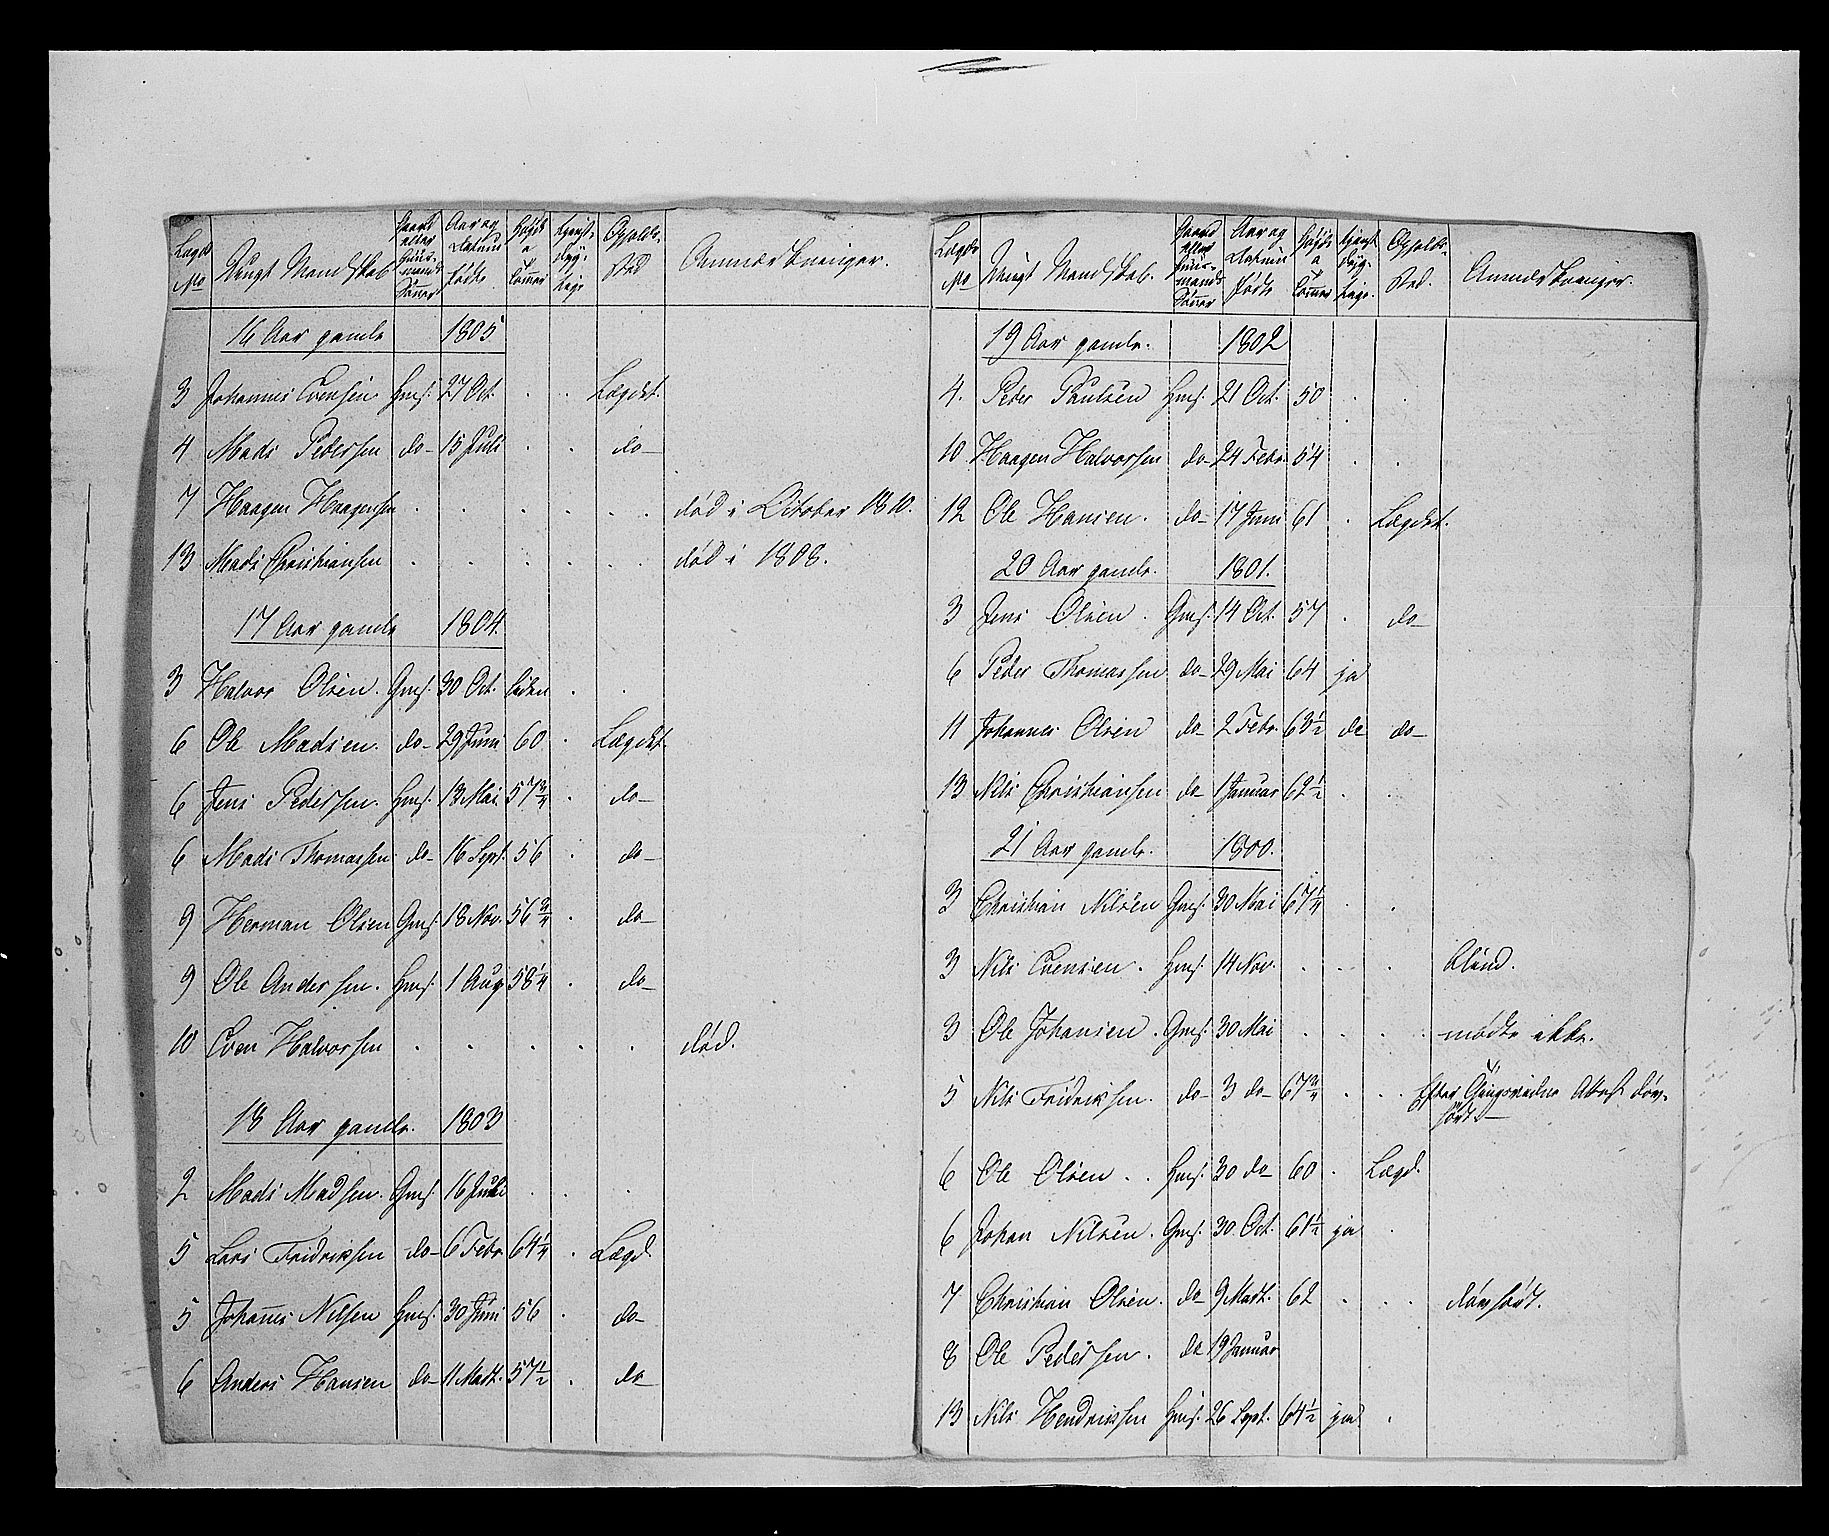 Lægds No | Ungt Mandskab | Gaard eller Huus-mands Sönner | Aar og Datum födte | Höide a Tommer | tjenst-dyg-tige | Opholds-sted | Anmærkninger.
16 Aar gamle 1805
3 Johannes Evensen Hms. 27 Oct. . . Lægdet.
4 Mads Pedersen do- 15 Juli . . do-
7 Haagen Haagensen . . . . . död i October 1810.
13 Mads Christiansen . . . . . död i 1808.
17 Aar gamle 1804.
3 Halvor Olsen. Gms. 30 Oct. liden . .
6 Ole Madsen. do- 29 Juni 60 . Lægdet.
6 Jens Pedersen. Hms. 13 Mai 57 3/4 . do-
6 Mads Thomassen do- 16 Sept. 56 . do-
9 Herman Olsen Gms. 18 Nov. 56 3/4 . do-
9 Ole Andersen. Hms. 1 Aug 58 1/4 . do-
10 Even Halvorsen . . . . . död.
18 Aar gamle. 1803
2 Mads Madsen. Gms. 16 Juli . . .
5 Lars Fridriksen do- 6 Febr 64 1/4 . Lægd.
5 Johanes Nilsen Hms. 30 Juni 56 . do-
6 Anders Hansen do- 11 Mart. 57 1/2 . do-
Lægds No | Ungt Mandskab. | Gaard eller Huus-mands Sönner | Aar og Datum födte | Höide a Tommer | tjenst dyg-tige. | Opholds-Sted. | Anmærkninger.
19 Aar gamle. 1802
4. Peder Paulsen Hms. 21 Oct. 50 . .
10 Haagen Halvorsen do- 24 Febr. 54 . .
12 Ole Hansen. do- 17 Juni 61 . Lægdet.
20 Aar gamle. 1801.
3 Jens Olsen. Gms. 14 Oct. 57 . do-
6 Peder Thomassen do- 29 Mai 64 ja
11 Johannes Olsen do- 2 Febr. 63 1/2 do do-
13 Nils Christiansen do- 1 Januar 62 1/2 . .
21 Aar gamle. 1800.
3 Christian Nilsen Gms. 30 Mai 67 1/4 . .
3 Nils Evensen. Hms. 14 Nov. . . . blind.
3 Ole Johansen. Gms. 30 Mai . . . mödte ikke.
5 Nils Fridriksen. do- 3 do- 67 3/4 . . Efter Attest döv-
hört-
6 Ole Olsen . . Hms. 30 do- 60 . Lægd.
6 Johan Nilsen. Gms. 30. Oct. 61 1/2 ja .
7 Christian Olsen. do- 9 Mart. 62 . . . dövhört.
8 Ole Pedersen. do 19 Januar
13 Nils Hendriksen Hms. 26 Sept. 64 1/2 ja .